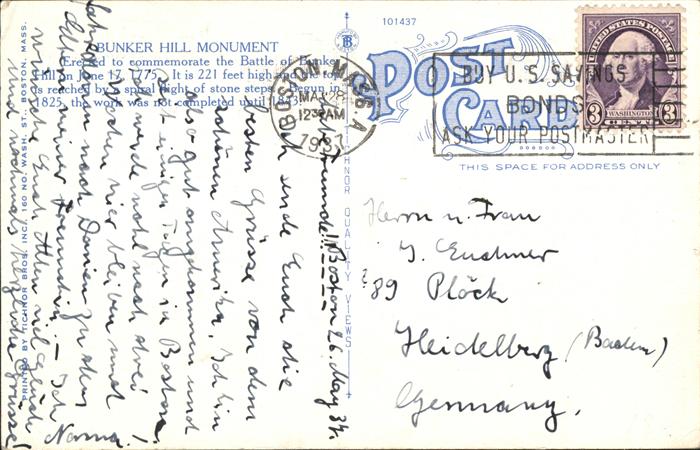 BUNKER HILL MONUMENT
Erected to commemorate the Battle of Bunker
Hill in June 17, 1775. It is 221 feet high and the top
is reached by a spiral flight of stone steps. Begun in
1825, the work was not completed until 1843.
101437
POST
CARD
THIS SPACE FOR ADDRESS ONLY
BOSTON, MASS. A
MAR
12 30 AM
BUY U.S. SAVINGS
BONDS
ASK YOUR POSTMASTER
UNITED STATES POSTAGE
3 WASHINGTON 3
TICHNOR QUALITY VIEWS
PRINTED BY TICHNOR BROS. INC., 160 NO. WASH. ST., BOSTON, MASS.
Boston 26. May 37.
Freunde!!
sende Euch die
besten Grüsse von dem
Amerika. Ich bin
also gut angekommen und
seit einigen Tagen in Boston.
Ich werde wohl noch drei
Wochen hier bleiben und
dann nach Darien zu
meiner Freundin. – Ich
wünsche Euch Allen viel Glück
und nochmals herzliche Grüsse!
Norma.
Herrn u. Frau
89 Plöck
Heidelberg (Baden)
Germany.